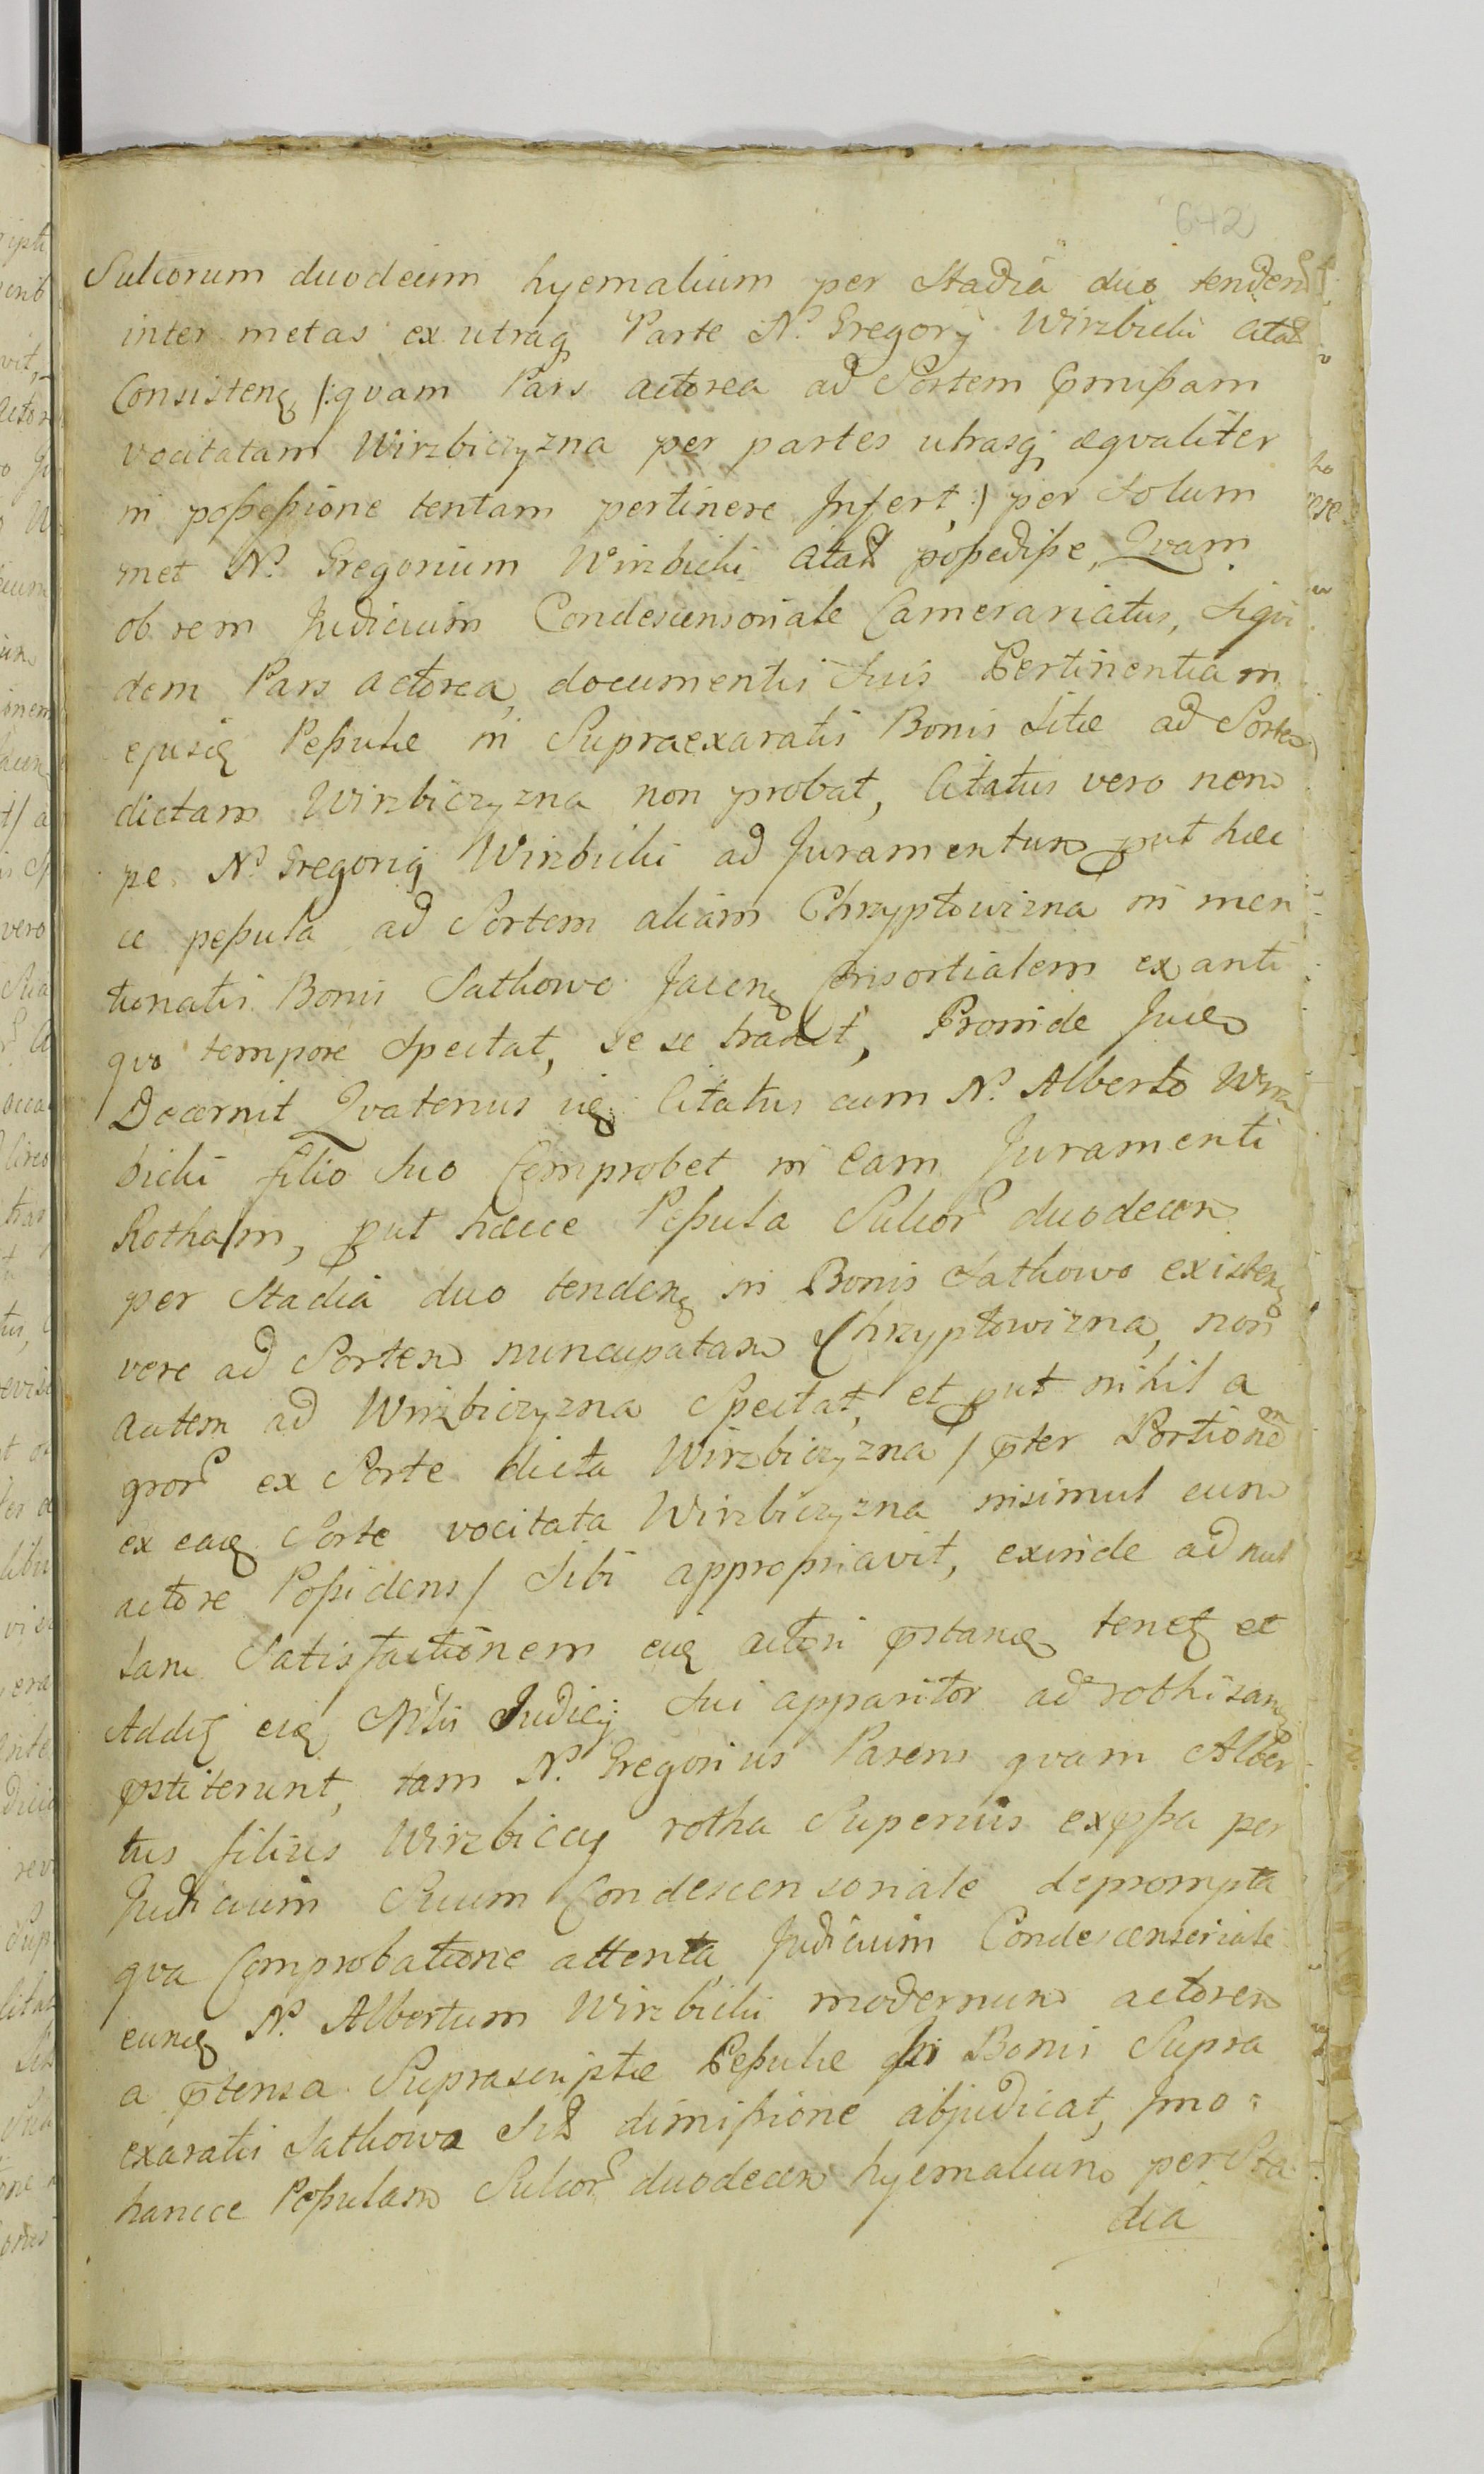 642
Sulcorum duodecim hyemalium per Stadia duo tenden
inter metas ex utraq Parte N. Gregorij Wirzbicki Citati
Consisteng /:quam Pars actorea ad Sortem Com̄ißam
vocitatam Wirzbiczyzna per partes utrasq, æqvaliter
in poßeßione tentam pertinere Infert,:/ per Solum
met N. Gregorium Wirzbicki Citat poßediße, Qvam
ob rem Judicium Condescensoriale Camerariatus, Siqvi
dem Pars actorea, documentis Suis Pertinentiam
ejusq Peßulæ in Supraexaratis Bonis Sitæ ad Sortem
dictam Wirzbiczyzna non probat, Citatus vero nem
pe N. Gregorig Wirzbicki ad Juramentum put hæc
ce peßula ad Sortem aliam Chrzyptowizna in men
tionatis Bonis Sathowo Jaceng Consortialem ex anti
qvo tempore Spectat, se se tradit, Proinde Jdem
Decernit Qvatenus ijq Citatus cum N. Alberto Wirz
bicki filio Suo Comprobet in eam Juramenti
Rotham, put hæcce Peßula Sulcor duodecem
per Stadia duo tendeng in Bonis Sathowo existeng
vere ad Sortem nuncupatam Chrzyptowizna, non
autem ad Wirzbiczyzna Spectat, et put nihil a
gror ex Sorte dicta Wirzbiczyzna / pter Portionem
ex eaq Sorte vocitata Wirzbiczyzna insimul cum
actore Poßidens / Sibi appropriavit, exinde ad nul
lam Satisfactionem eiq actori pstanq tenet et
Addit eiq Nrlis Judicij Sui apparitor ad rothisang
pstiterunt, tam N. Gregorius Parens quam Alber
tus filius Wirzbiccy rotha Superius expßa per
Judicium Suum Condescensoriale deprompta
qva Comprobatione attenta Judicium Condescensoriale
eunq N. Albertum Wirzbicki modernum actorem
a ptensa Suprascriptæ Peßulæ in Bonis Supra
exaratis Sathowo Sit dimißione abjudicat, Jmo
hancce Peßulam Sulcor duodecem hyemalium per Sta
dia